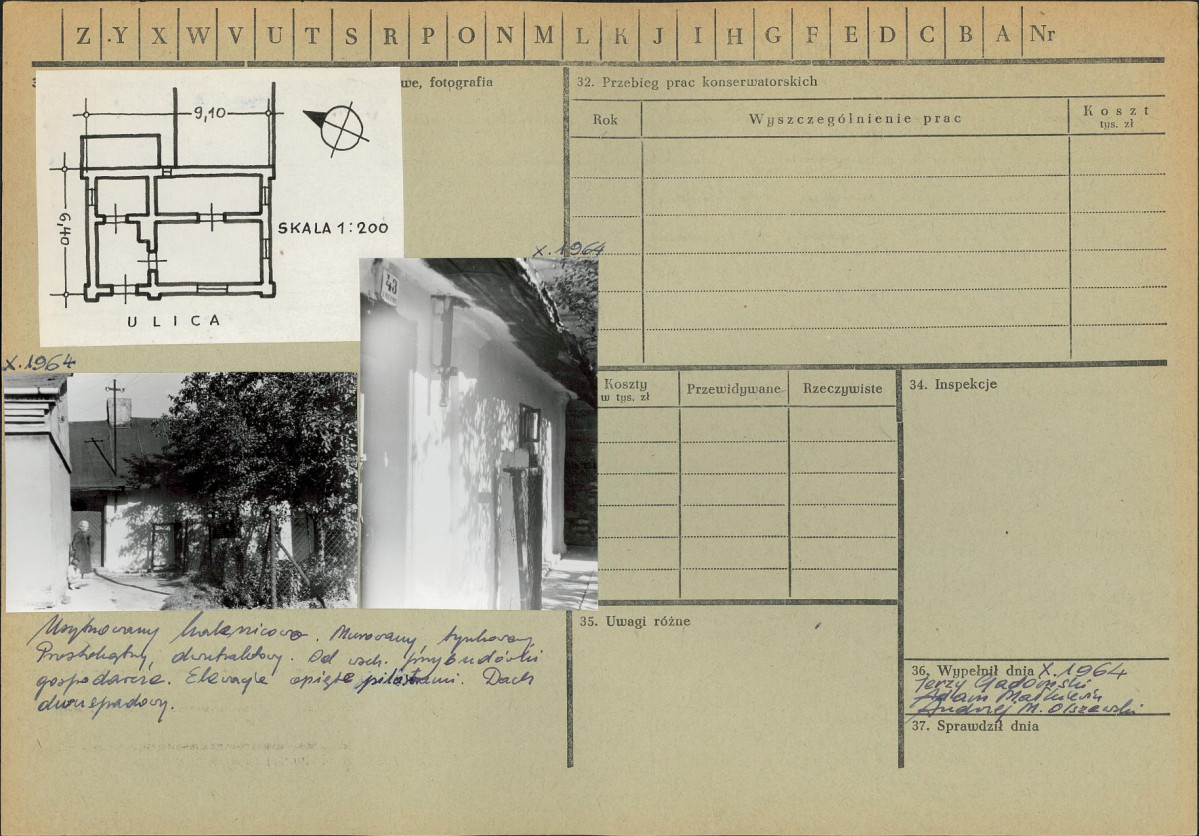 Z Y X W V U T S R P O N M L K J I H G F E D C B A Nr
we, fotografia
9,10
6,40
SKALA 1:200
ULICA
X.1964
43
X.1964
Usytuowany kalenicowo. Murowany, tynkowany
Prostokątny, dwutraktowy. Od wsch. przybudówki
gospodarcze. Elewacje opięte pilastrami. Dach
dwuspadowy.
32. Przebieg prac konserwatorskich
Rok
Wyszczególnienie prac
Koszt
tys. zł
Koszty
w tys. zł
Przewidywane
Rzeczywiste
34. Inspekcje
35. Uwagi różne
36. Wypełnił dnia X.1964
Jerzy Gadomski
Adam Małkiewicz
Andrzej M. Olszewski
37. Sprawdził dnia